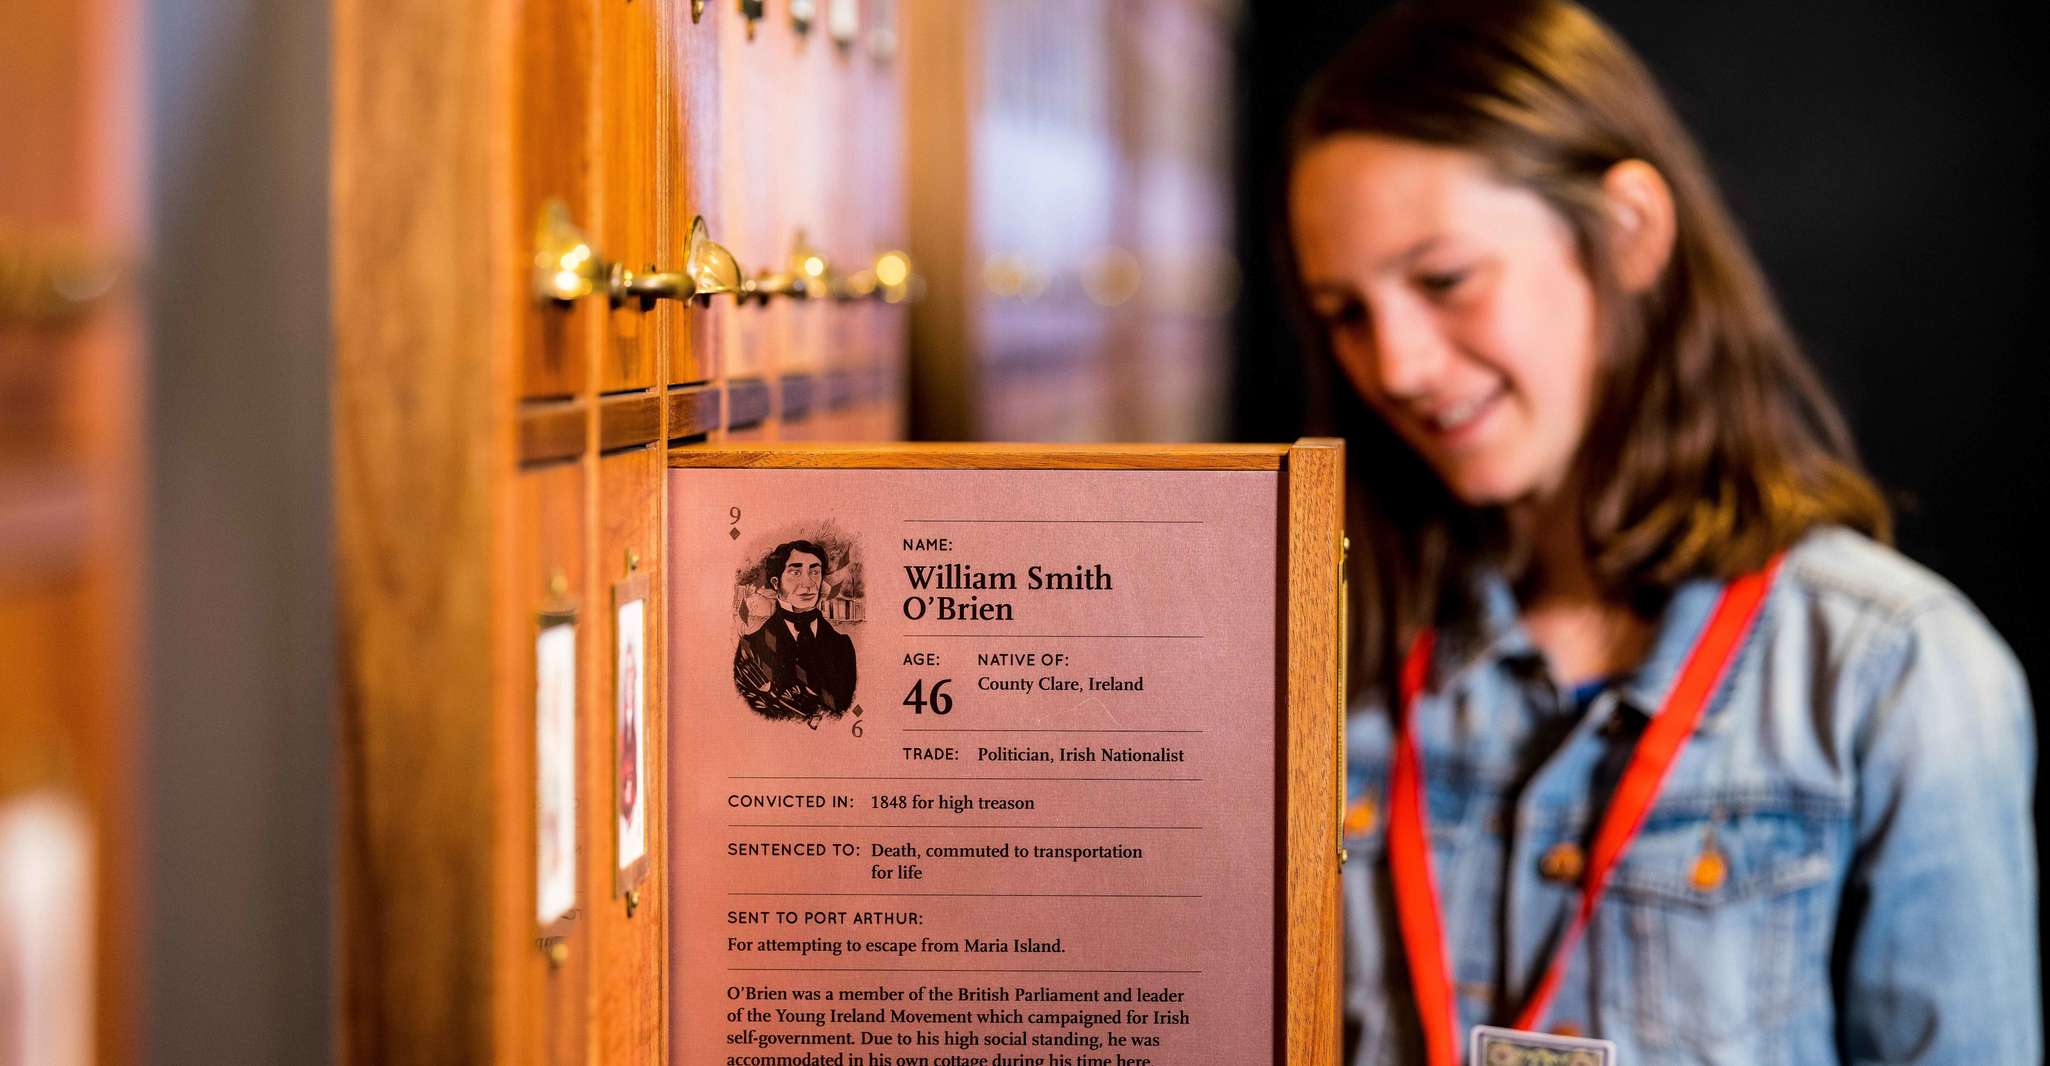 9
NAME:
William Smith
O’Brien
AGE:
46
NATIVE OF:
County Clare, Ireland
TRADE: Politician, Irish Nationalist
9
CONVICTED IN: 1848 for high treason
SENTENCED TO: Death, commuted to transportation
for life
SENT TO PORT ARTHUR:
For attempting to escape from Maria Island.
O’Brien was a member of the British Parliament and leader
of the Young Ireland Movement which campaigned for Irish
self-government. Due to his high social standing, he was
accommodated in his own cottage during his time here.